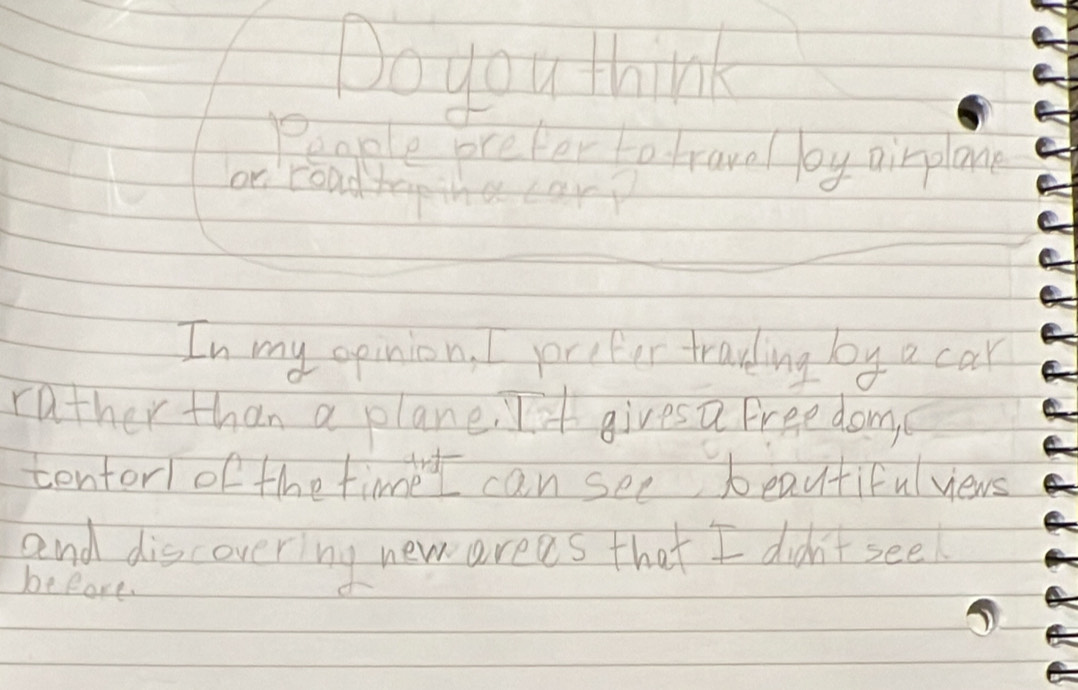 Do you think
People prefer to travel by airplane
or road trip in a car?
In my opinion, I prefer travling by a car
rather than a plane. It gives a Freedom,
contorl of the time that I can see beautiful views
and discovering new areas that I didn't see
before.